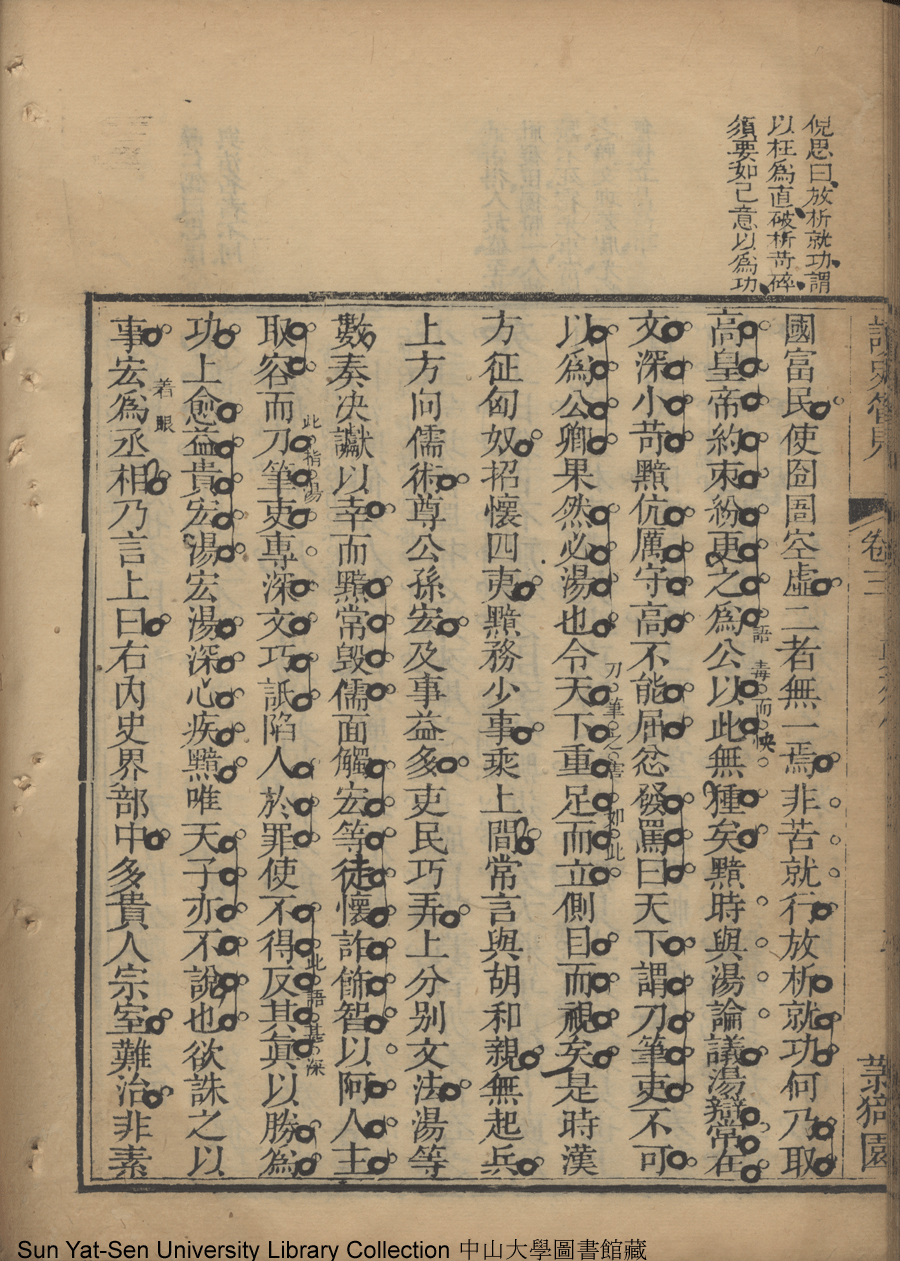 倪思曰放析就功謂
以枉爲直破析苛碎
須要如己意以爲功
卷三
菉猗園
國富民使囹圄空虛二者無一焉非苦就行放析就功何乃取
高皇帝約束紛更之爲公以此無種矣黯時與湯論議湯辯常在
語毒而快
文深小苛黯伉厲守高不能屈忿發罵曰天下謂刀筆吏不可
以爲公卿果然必湯也令天下重足而立側目而視矣是時漢
刀筆之害如此
方征匈奴招懷四夷黯務少事乘上間常言與胡和親無起兵
上方向儒術尊公孫宏及事益多吏民巧弄上分別文法湯等
數奏决讞以幸而黯常毀儒面觸宏等徒懷詐飾智以阿人主
取容而刀筆吏專深文巧詆陷人於罪使不得反其真以勝爲
此指湯
此語甚深
功上愈益貴宏湯宏湯深心疾黯唯天子亦不說也欲誅之以
事宏爲丞相乃言上曰右內史界部中多貴人宗室難治非素
着眼
Sun Yat-Sen University Library Collection 中山大學圖書館藏